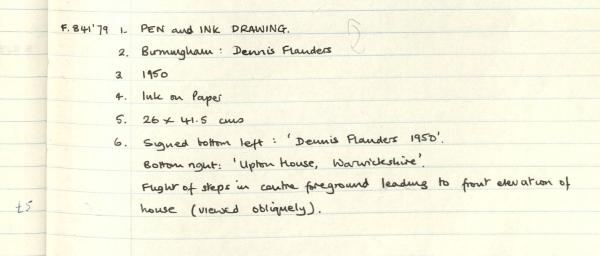 F.841'79 1. PEN and INK DRAWING.
2. Birmingham : Dennis Flanders
3 1950
4. Ink on Paper
5. 26 x 41.5 cms
6. Signed bottom left : 'Dennis Flanders 1950'.
Bottom right: 'Upton House, Warwickshire'.
Flight of steps in centre foreground leading to front elevation of
£5 house (viewed obliquely).